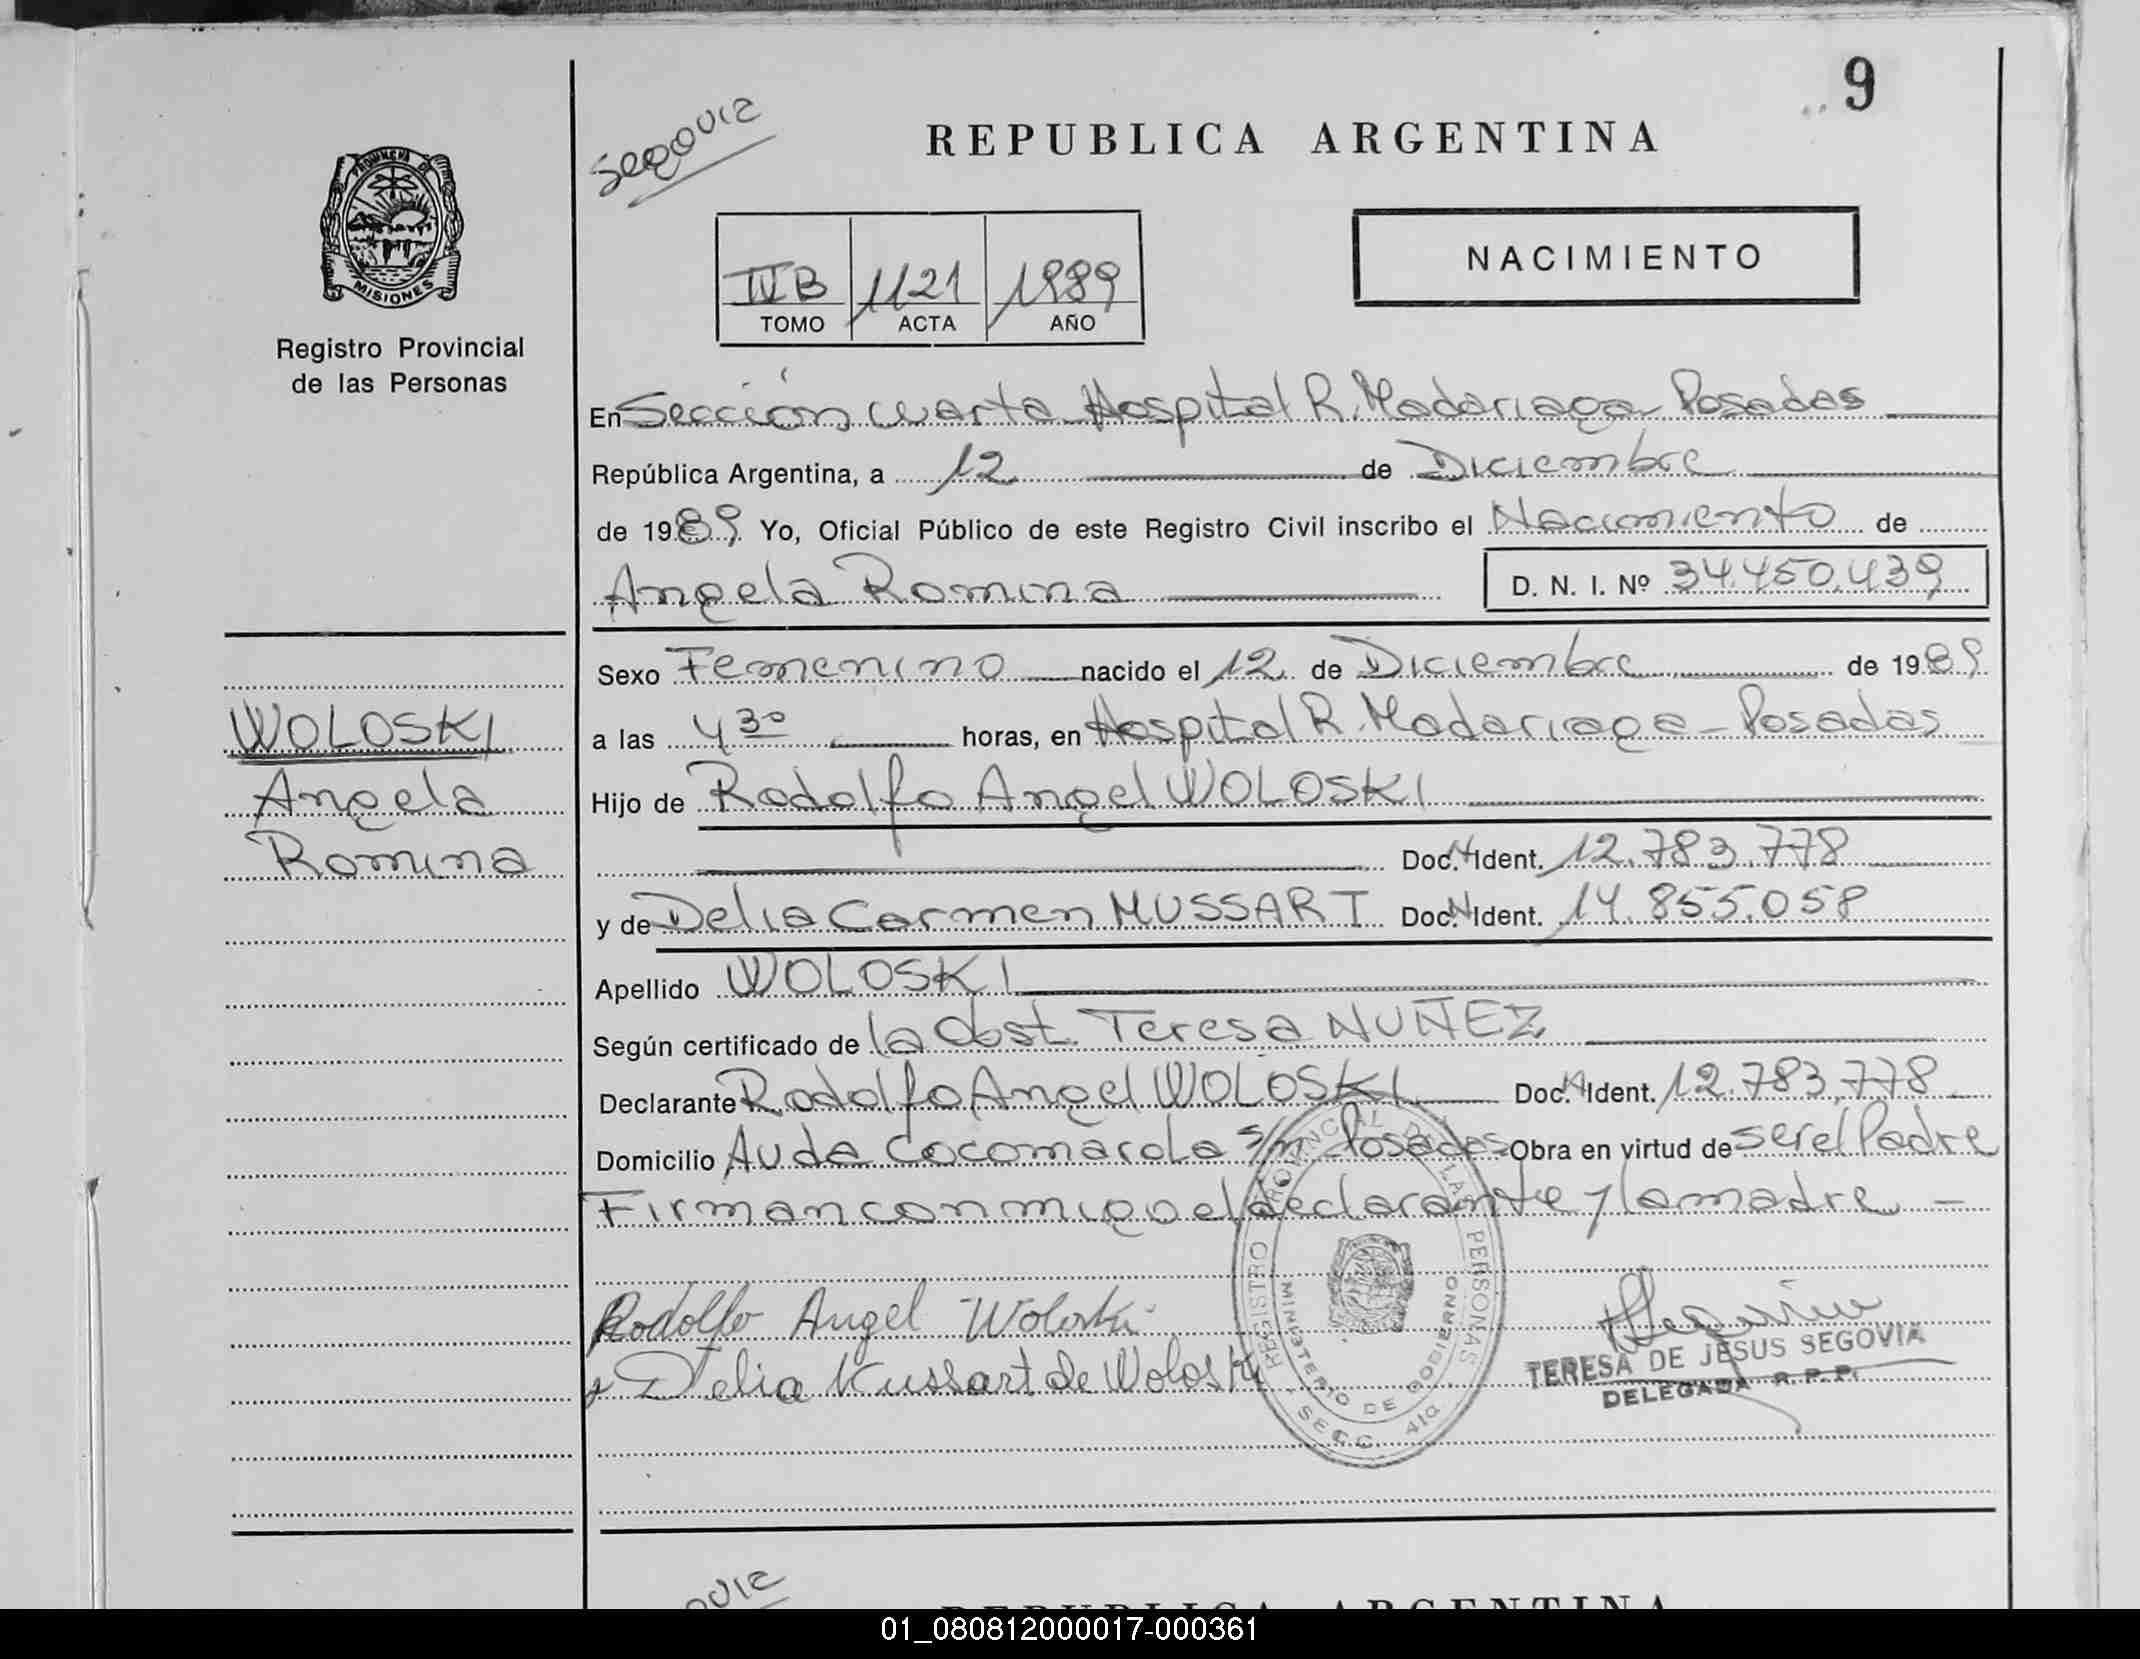 9
Segovia
REPUBLICA ARGENTINA
PROVINCIA DE
MISIONES
Registro Provincial
de las Personas
IV B 1121 1989
TOMO ACTA AÑO
NACIMIENTO
En Sección cuarta Hospital R. Madariaga Posadas
República Argentina, a 12 de Diciembre
de 1989 Yo, Oficial Público de este Registro Civil inscribo el Nacimiento de
Angela Romina D. N. I. Nº 34.450.439
WOLOSKI
Angela
Romina
Sexo Femenino nacido el 12 de Diciembre de 1989
a las 4 30 horas, en Hospital R. Madariaga - Posadas
Hijo de Rodolfo Angel WOLOSKI
Doc. N Ident. 12.783.778
y de Delia Carmen MUSSART Doc. N Ident. 14.855.058
Apellido WOLOSKI
Según certificado de la Obst. Teresa NUÑEZ
Declarante Rodolfo Angel WOLOSKI Doc. N Ident. 12.783.778
Domicilio Avda Cocomarola s/n Posadas Obra en virtud de ser el Padre
Firman conmigo el declarante y la madre -
Rodolfo Angel Woloski
Delia Mussart de Woloski
REGISTRO PROVINCIAL DE LAS PERSONAS
MINISTERIO DE GOBIERNO
SECC. 4ta
TERESA DE JESUS SEGOVIA
DELEGADA R.P.P.
REPUBLICA ARGENTINA
01_080812000017-000361